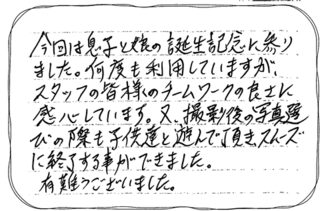 今回は息子と娘の誕生記念に参り
ました。何度も利用していますが、
スタッフの皆様のチームワークの良さに
感心しています。又、撮影後の写真選
びの際も子供達と遊んで頂きスムーズ
に終了する事ができました。
有難うございました。